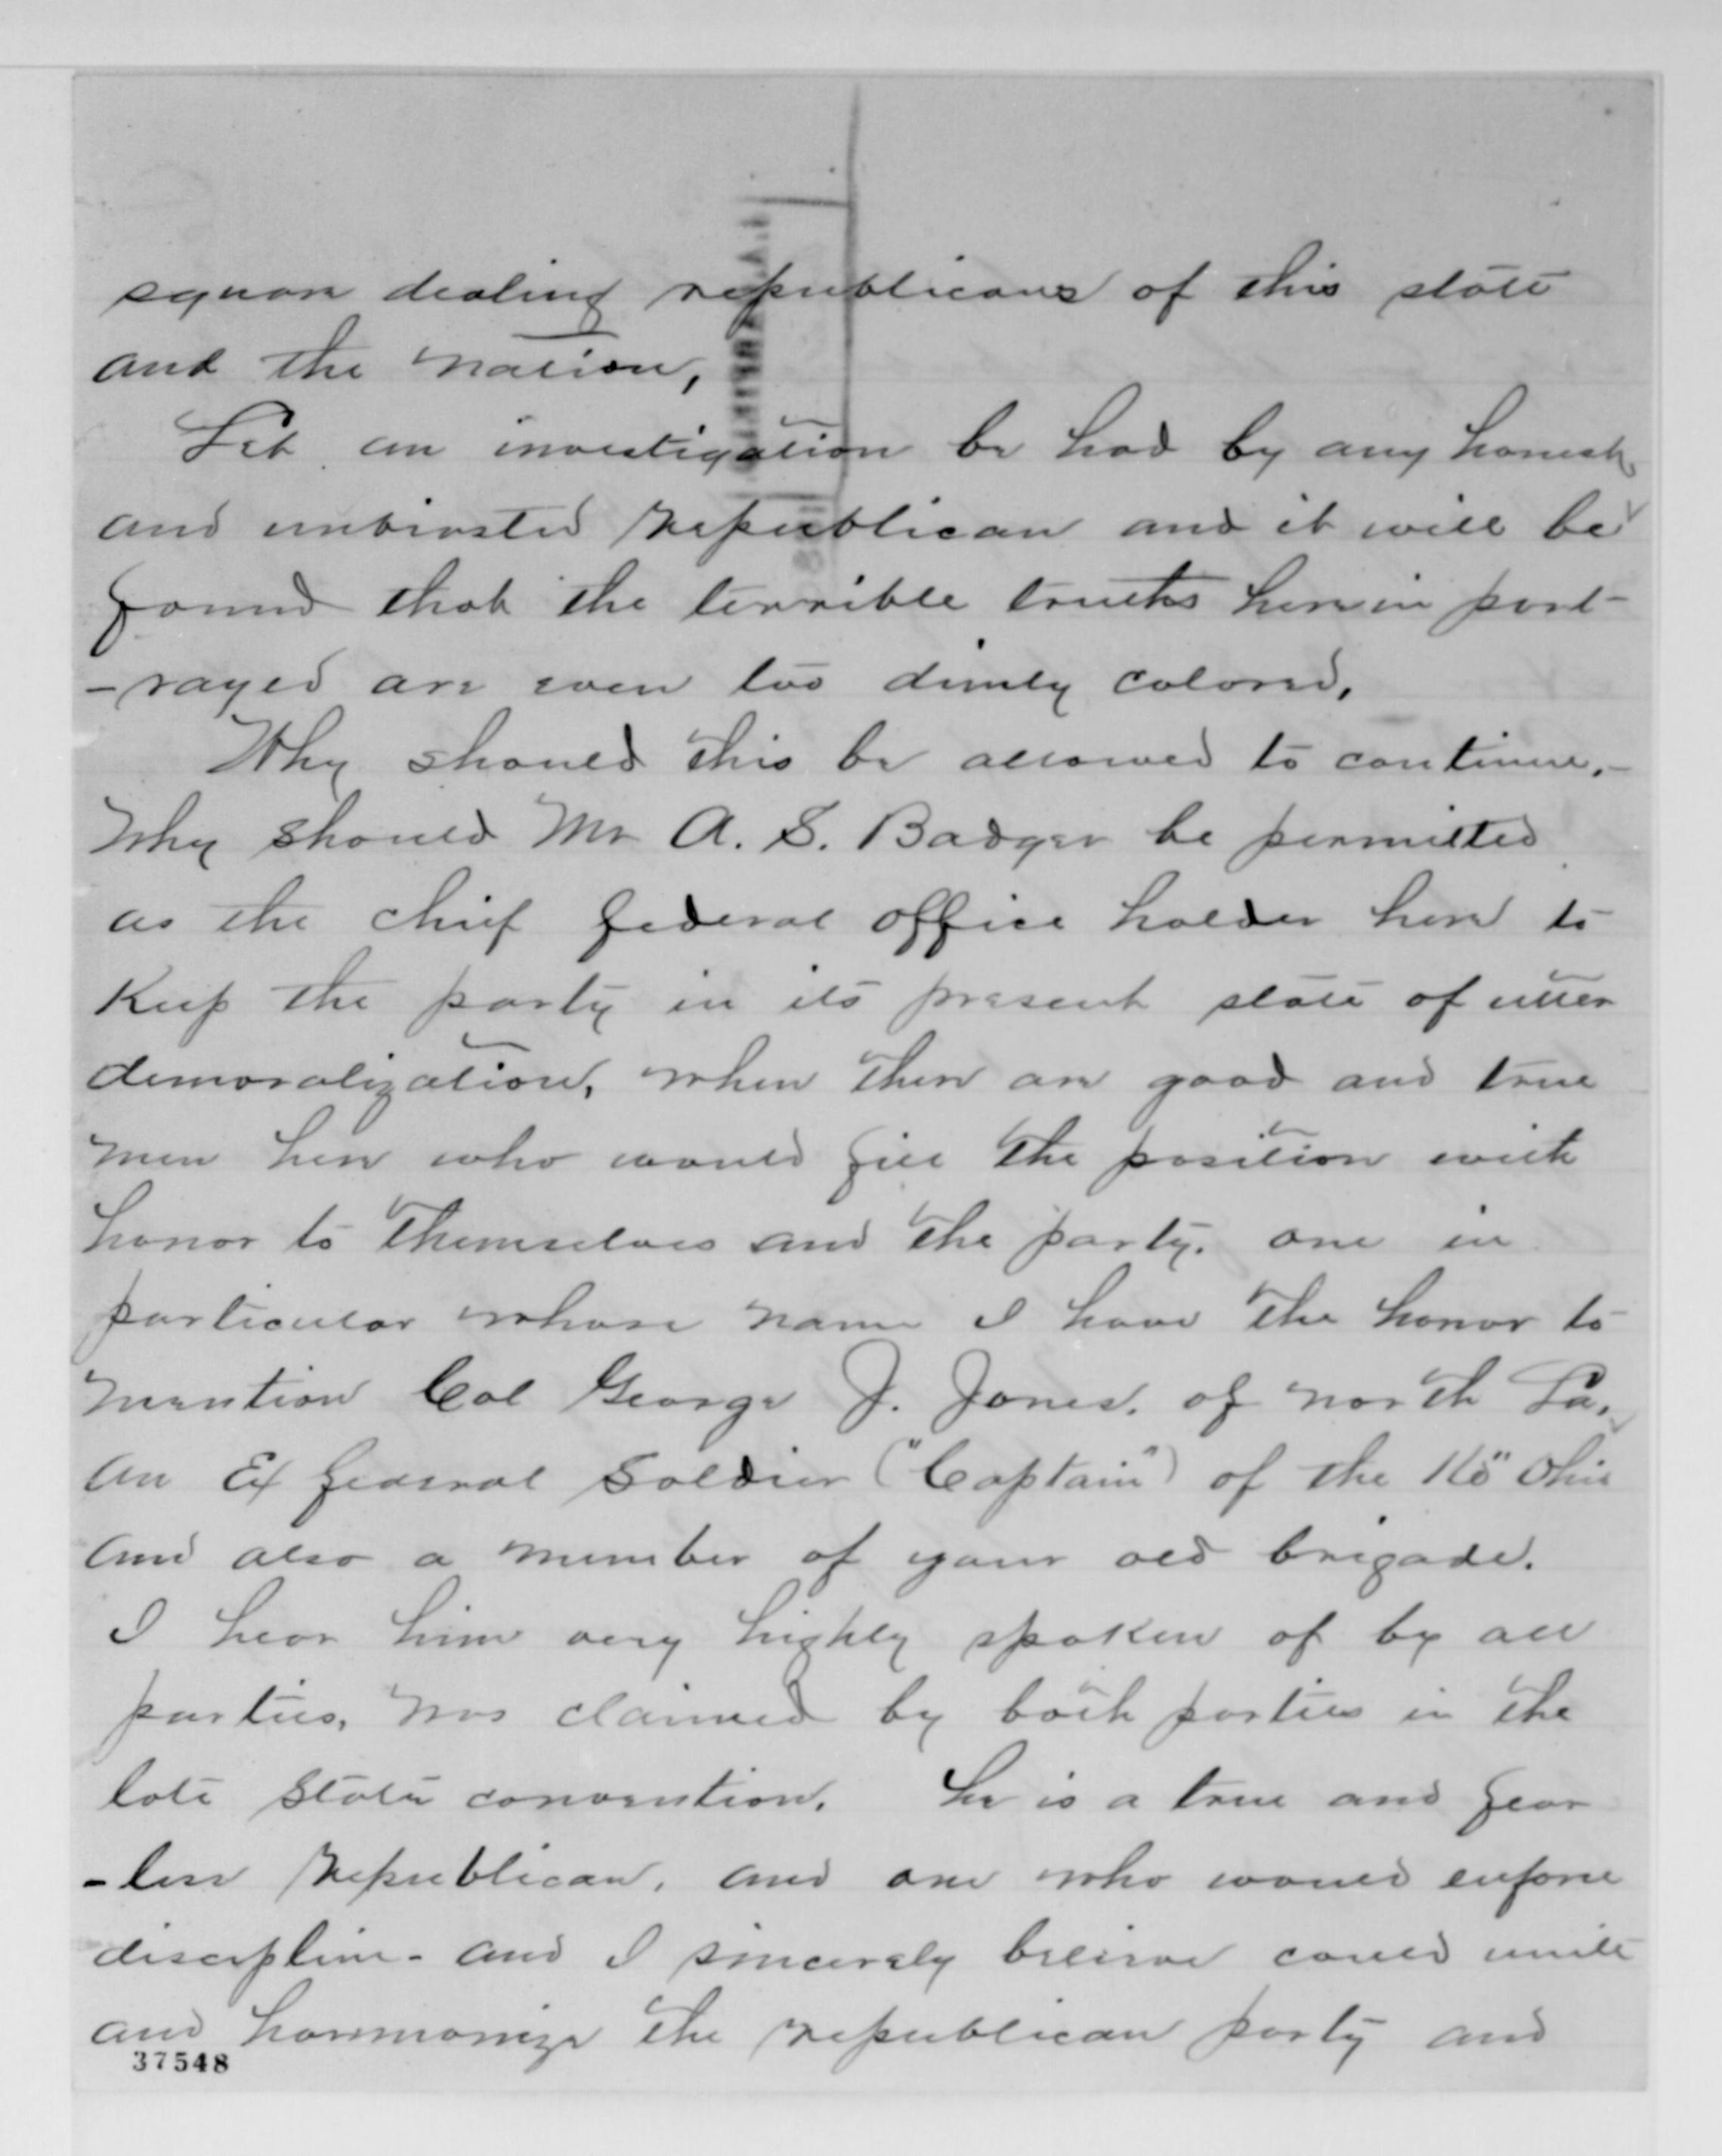 square dealing republicans of this state
and the nation,
Let an investigation be had by any honest
and unbiasted republican and it will be
found that the terrible truths herein port-
-rayed are even too dimly colored,
Why should this be allowed to continue,-
Why should Mr A. S. Badger be permitted
as the chief federal office holder here to
Keep the party in its present state of utter
demoralization, when there are good and true
men here who would fill the position with
honor to themselves and the party. one in
particular whose name I have the honor to
mention Col George J. Jones. of north La,
an Ex federal Soldier ("Captain") of the Ohio
and also a member of your old brigade.
I hear him very highly spoken of by all
parties, was claimed by both parties in the
late State convention. he is a true and fear
-less republican, and one who would enforce
discipline- and I sincerely believe could unite
and harmonize the republican party and
37548